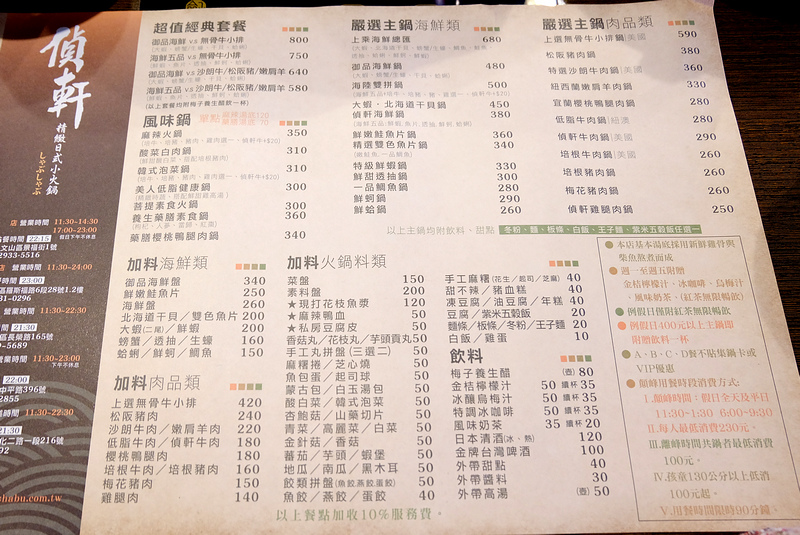 偵軒
精緻日式小火鍋
しゃぶしゃぶ
店 營業時間 11:30-14:30
17:00-23:00
假日下午不休息
22:15
文山區景福街1號
2933-5516
營業時間 11:30-24:00
23:00
區羅斯福路6段28號1.2樓
31-0296
營業時間 11:30-22:30
21:30
區長榮路165號
營業時間 11:30-23:00
下午不休息
22:00
中平路396號
2855
11:30-22:30
21:30
化二路一段216號
habu.com.tw
超值經典套餐
御品海鮮 vs 無骨牛小排 800
海鮮五品 vs 無骨牛小排 750
御品海鮮 vs 沙朗牛/松阪豬/嫩肩羊 640
海鮮五品 vs 沙朗牛/松阪豬/嫩肩羊 580
(以上套餐均附梅子養生醋飲一杯)
風味鍋 單點
麻辣火鍋 350
酸菜白肉鍋 310
韓式泡菜鍋 310
美人低脂健康鍋 300
菩提素食火鍋 300
養生藥膳素食鍋 360
藥膳櫻桃鴨腿肉鍋 340
嚴選主鍋海鮮類
上乘海鮮總匯 680
御品海鮮鍋 480
海陸雙拼鍋 500
大蝦、北海道干貝鍋 450
偵軒海鮮鍋 380
鮮嫩鮭魚片鍋 360
精選雙色魚片鍋 340
特級鮮蝦鍋 330
鮮甜透抽鍋 300
一品鯛魚鍋 280
鮮蚵鍋 290
鮮蛤鍋 260
嚴選主鍋肉品類
上選無骨牛小排鍋(美國) 590
松阪豬肉鍋 380
特選沙朗牛肉鍋(美國) 360
紐西蘭嫩肩羊肉鍋 330
宜蘭櫻桃鴨腿肉鍋 280
低脂牛肉鍋(紐澳) 280
偵軒牛肉鍋(美國) 290
培根牛肉鍋(美國) 260
培根豬肉鍋 260
梅花豬肉鍋 260
偵軒雞腿肉鍋 250
以上主鍋均附飲料、甜點 冬粉、麵、板條、白飯、王子麵、紫米五穀飯任選一
加料海鮮類
御品海鮮盤 340
鮮嫩鮭魚片 250
海鮮盤 260
北海道干貝/雙色魚片 200
大蝦(二尾)/鮮蝦 200
螃蟹/透抽/生蠔 160
蛤蜊/鮮蚵/鯛魚 150
加料肉品類
上選無骨牛小排 420
松阪豬肉 240
沙朗牛肉/嫩肩羊肉 220
低脂牛肉/偵軒牛肉 180
櫻桃鴨肉 180
培根牛肉/培根豬肉 160
梅花豬肉 150
雞腿肉 140
加料火鍋料類
菜盤 150
素料盤 200
★現打花枝魚漿 120
★麻辣鴨血 50
★私房豆腐皮 50
香菇貢丸/花枝丸/芋頭貢丸 50
手工丸拼盤(三選二) 50
麻糬捲/芝心燒 50
魚包蛋/起司球 50
蒙古包/白玉湯包 50
酸白菜/韓式泡菜 50
杏鮑菇/山藥切片 50
青菜/高麗菜/白菜 50
金針菇/香菇 50
蕃茄/芋頭/蝦堡 50
地瓜/南瓜/黑木耳 50
餃類拼盤(魚餃.燕餃.蛋餃) 50
魚餃/燕餃/蛋餃 40
手工麻糬(花生/起司/芝麻) 40
甜不辣/豬血糕 40
凍豆腐/油豆腐/年糕 40
豆腐/紫米五穀飯 20
麵條/板條/冬粉/王子麵 20
白飯/雞蛋 10
飲料
梅子養生醋 (壺) 80
金桔檸檬汁 50 續杯 35
冰釀烏梅汁 50 續杯 35
特調冰咖啡 50 續杯 35
風味奶茶 35 續杯 20
日本清酒(冰、熱) 120
金牌台灣啤酒 100
外帶甜點 40
外帶醬料 30
外帶高湯 (壺) 50
本店基本湯底採用新鮮雞骨與
柴魚熬煮而成
週一至週五附贈
金桔檸檬汁、冰咖啡、烏梅汁、
風味奶茶、(紅茶無限暢飲)
例假日僅附紅茶無限暢飲
例假日400元以上主鍋即
附贈飲料一杯
A、B、C、D餐不貼集鍋卡或
VIP優惠
顛峰用餐時段消費方式:
I.顛峰時間:假日全天及平日
11:30-1:30 6:00-9:30
II.每人最低消費230元。
III.顛峰時間共鍋者最低消費
100元。
IV.孩童130公分以上低消
100元起。
V.用餐時間限時90分鐘。
以上餐點加收10%服務費。